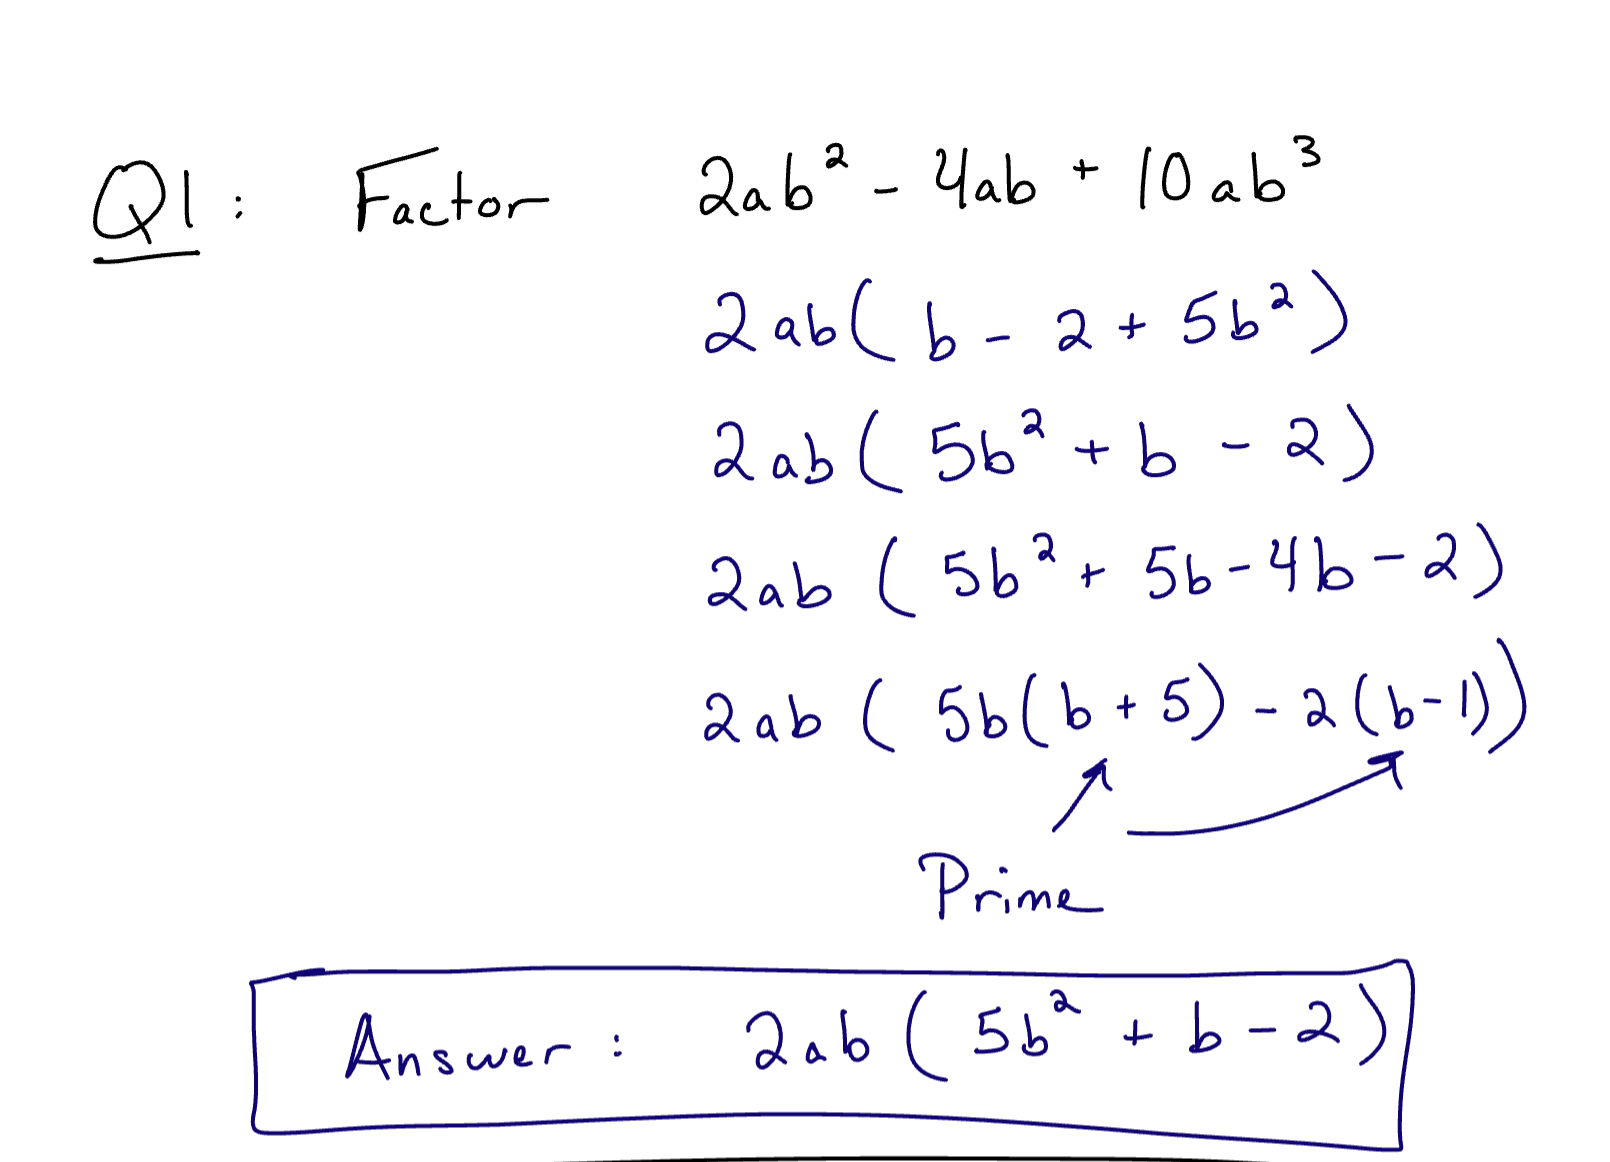 Q1: Factor 2ab² - 4ab + 10ab³
2ab( b - 2 + 5b² )
2ab( 5b² + b - 2 )
2ab ( 5b² + 5b - 4b - 2 )
2ab ( 5b(b + 5) - 2(b-1))
Prime
Answer: 2ab ( 5b² + b - 2 )